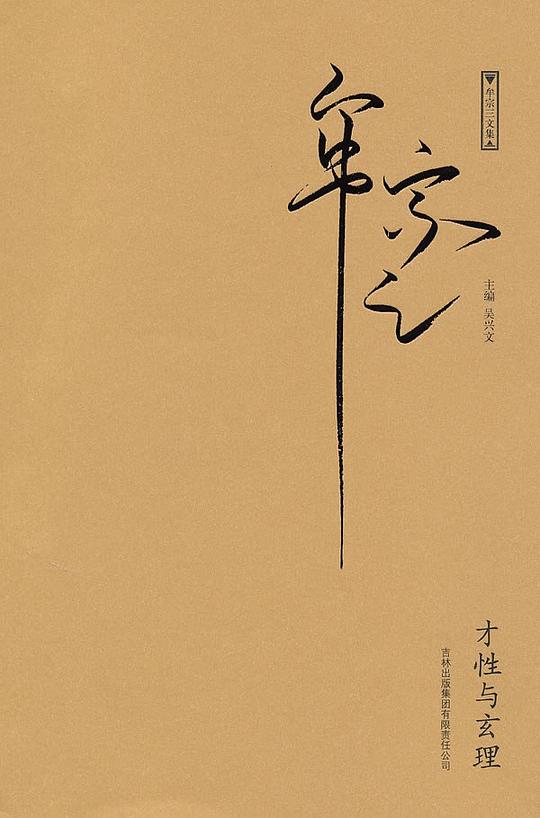 牟宗三文集
牟宗三
主编 吴兴文
才性与玄理
吉林出版集团有限责任公司